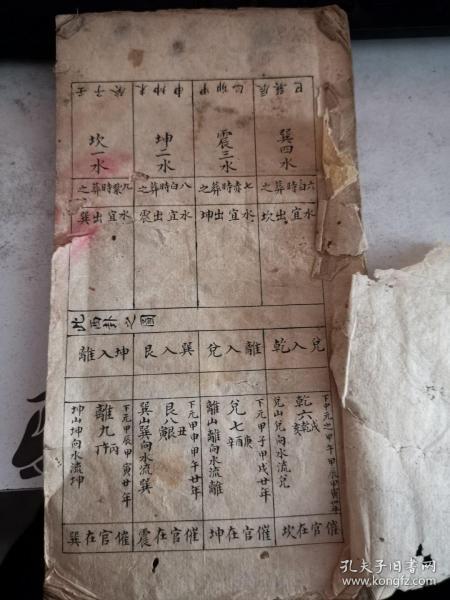 巽四水
六白時葬之
水宜出坎
震三水
七赤時葬之
水宜出坤
坤二水
八白時葬之
水宜出震
坎一水
九紫時葬之
水宜出巽
此四卦之圖
兌入乾
乾六
戌乾亥
兌山兌向水流兌
催官在坎
離入兌
下元甲子甲戌廿年
兌七
庚酉
離山離向水流離
催官在坤
巽入艮
下元甲申甲午廿年
艮八
丑艮
巽山巽向水流巽
催官在震
坤入離
下元甲辰甲寅廿年
離九
丙午丁
坤山坤向水流坤
催官在巽
孔夫子旧书网
www.kongfz.com